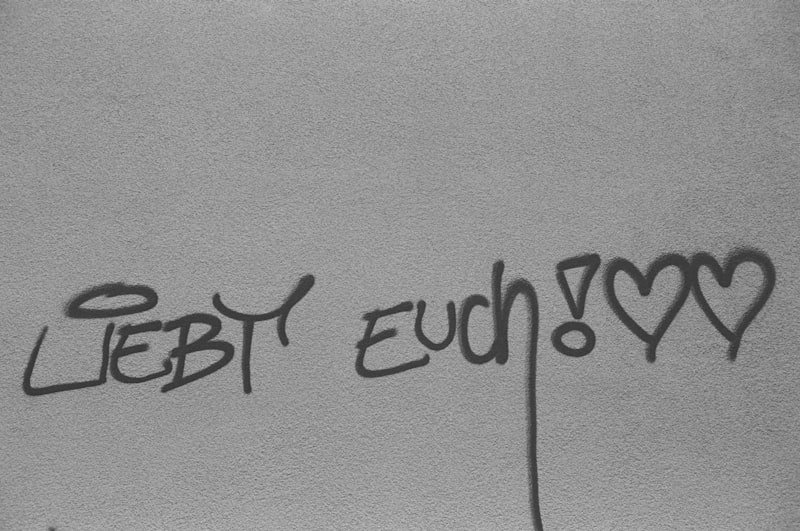 LiEBT Euch!♡♡